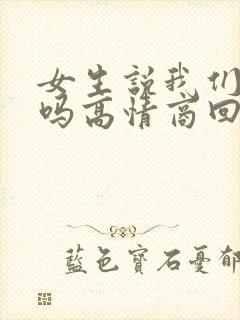 女生说我们
吗高情商回
藍色寶石憂郁